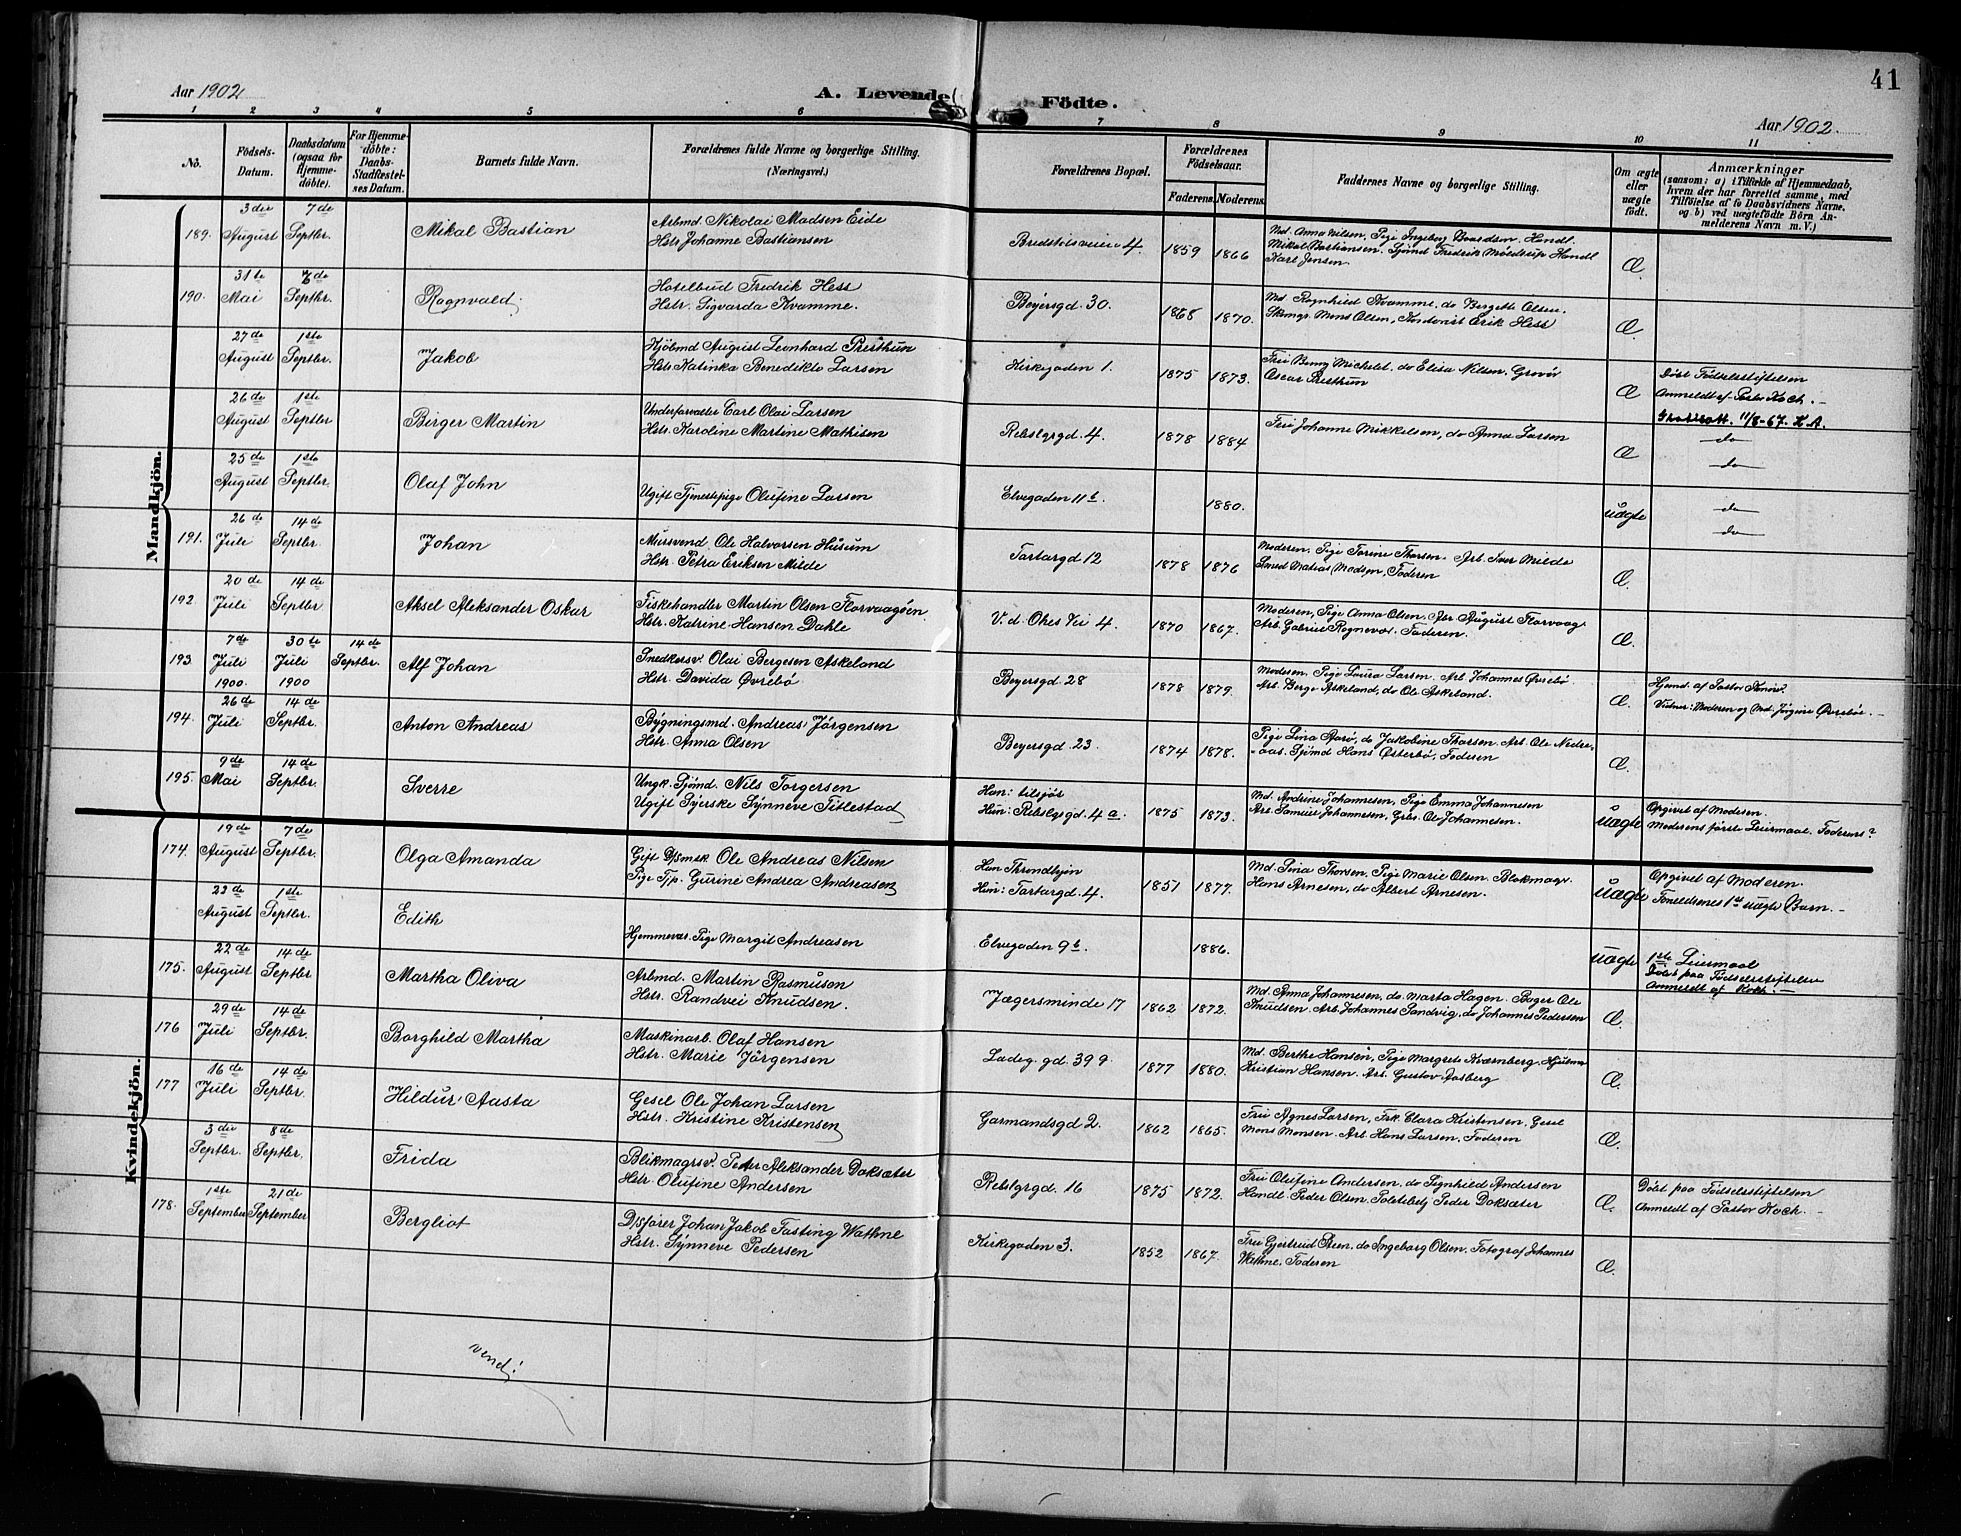 41
Aar 1902
A. Levende Födte.
Aar 1902.
1 2 3 4 5 6 7 8 9 10 11
No.
Födsels-Datum.
Daabsdatum (ogsaa for Hjemme-döbte).
For Hjemme-döbte: Daabs-Stadfæstel-ses Datum.
Barnets fulde Navn.
Forældrenes fulde Navne og borgerlige Stilling.
(Næringsvei.)
Forældrenes Bopæl.
Forældrenes Födselsaar.
Faderens. Moderens.
Faddernes Navne og borgerlige Stilling.
Om ægte eller uægte födt.
Anmærkninger
(saasom: a) i Tilfælde af Hjemmedaab,
hvem der har forrettet samme, med
Tilföielse af to Daabsvidners Navne,
og b) ved uægtefödte Börn An-
melderens Navn m. V.)
Mandkjön.
189. 3die August 7de Septbr. Mikal Bastian
Arbmd. Nikolai Madsen Eide
Hstr. Johanne Bastiansen
Bredstuveien 4. 1859 1866
Md. Anna Nilsen, Pige Ingeborg Baardsen. Handl.
Mikal Bastiansen. Sjømd Fredrik Møldrup Handl
Karl Jensen
Æ.
190. 31te Mai 7de Septbr. Ragnvald.
Hotelbud Fredrik Hess
Hstr. Sigvarda Kvamme.
Beyersgd. 30. 1868 1870.
Md Ragnhild Kvamme. do Bergette Olsen.
Skomgr. Mons Olsen, Kontorist Erik Hess
Æ.
27de August 1ste Septbr. Jakob
Kjöbmd August Leonhard Presthun
Hstr. Katinka Benedikte Larsen
Kirkegaden 1. 1875 1873.
Fru Benny Michelet. do Elisa Nilsen. Gravör
Oscar Presthun
Æ
Döbt Födselsstiftelsen
Anmeldt af Pastor Koch. -
26de August 1ste Septbr Birger Martin
Underforvalter Carl Olai Larsen
Hstr. Karoline Martine Mathisen
Rebslgrgd. 4. 1878 1884
Fru Johanne Mikkelsen, do Anna Larsen
Æ
11/8-67. K.A.
do
do
25de August 1ste Septbr. Olaf John
Ugift Tjenestepige Olufine Larsen
Elvegaden 11b. 1880. uægte
do
do
191. 26de Juli 14de Septbr. Johan
Mursvend. Ole Halvorsen Husum
Hstr. Petra Eriksen Milde
Tartargd 12 1878 1876
Moderen. Pige Torine Thorsen. Arb. Iver Milde
Smed Matias Madsen, Faderen
Æ.
192. 20de Juli 14de Septbr. Aksel Aleksander Oskar
Fiskehandler Martin Olsen Florvaagöen.
Hstr. Katrine Hansen Dahle
V. d. Ohes Vei 4. 1870 1867.
Moderen, Pige Anna Olsen. Abr August Florvaag
Arb. Gabriel Rognevos. Faderen.
Æ.
193. 7de Juli 1900. 30te Juli 1900 14de Septbr. Alf Johan
Snedkersv. Olai Bergesen Askeland
Hstr. Davida Øvrebö
Beyersgd 28 1878 1879.
Moderen. Pige Laura Larsen. Arb Johannes Øvrebö
Arb. Berge Askeland, do Ole Askeland.
Æ.
Hjemd. af Pastor
Vidner: Moderen og Md. Jörgine Övreböe. -
194. 26de Juli 14de Septbr. Anton Andreas
Bygningsmd. Andreas Jörgensen
Hstr. Anna Olsen
Beyersgd 23. 1874 1878.
Pige Lina Aarö, do Jakobine Thorsen. Arb. Ole Nedre-
aas. Sjömd Hans Østerbö, Faderen
Æ.
195. 9de Mai 14de Septbr. Sverre
Ungk. Sjömd. Nils Torgersen
Ugift Syerske Synneve Titlestad
Han: tilsjös
Hun: Rebslgrgd. 4a. 1875 1873.
Md. Andrine Johannesen, Pige Emma Johannesen
Arb. Samuel Johannesen, Grbr. Ole Johannesen.
uægte
Opgivet af Moderen.
Moderens förste Leiermaal. Faderens?
Kvindekjön.
174. 19de August 7de Septbr. Olga Amanda
Gift D/Smsk. Ole Andreas Nilsen
Pige Tjp. Gurine Andrea Andreasen
Han Throndhjem
Hun: Tartargd. 4. 1851 1877.
Md. Lina Thorsen. Pige Marie Olsen. Blokmagr.
Hans Arnesen, do Albert Arnesen.
uægte
Opgivet af Moderen.
Foreldrenes 1ste uægte Barn. -
23de August 1ste Septbr. Edith
Hjemmevær. Pige Margit Andreasen
Elvegaden 9b. 1886. uægte
1ste Leiermaal
Döbt paa Födselsstiftelsen
Anmeldt af Koch. -
175. 22de August 14de Septbr. Martha Oliva
Arbmd. Martin Rasmusen
Hstr. Randvei Knudsen.
Jægersminde 17 1862 1872.
Md. Anna Johannesen, do Marta Hagen. Bager Ole
Knudsen. Arb. Johannes Sandvig, do Johannes Pedersen
Æ.
176 29de Juli 14de Septbr. Borghild Martha
Maskinarb. Olaf Hansen
Hstr. Marie Jörgensen
Ladeg. gd. 399. 1877 1880.
Md. Berthe Hansen, Pige Margrete Kværnberg. Hjulm
Kristian Hansen. Arb. Gustav Aasberg
Æ.
177 16de Juli 14de Septbr. Hildur Aasta
Gesel Ole Johan Larsen
Hstr. Kristine Kristensen
Garmandsgd 2. 1862 1865.
Fru Agnes Larsen, Frk. Clara Kristensen, Gesel
Mons Monsen. Arb. Hans Larsen, Faderen
Æ.
3die Septbr. 8de Septbr. Frida
Blikmagrsv. Peder Aleksander Doksæter
Hstr. Olufine Andersen
Rebslgrgd. 16 1875 1872.
Fru Olufine Andersen, do Signhild Andersen
Handl. Peder Olsen. Politibetj Peder Doksæter
Æ.
Döbt paa Födselsstiftelsen
Anmeldt af Pastor Koch. -
178. 1ste September 21de September Bergliot
D/Sförer Johan Jakob Fasting Wathne
Hstr. Synneve Pedersen
Kirkegaden 3. 1852 1867.
Fru Gjertrud Steen, do Ingeborg Olsen. Fotograf Johannes
Wathne. Faderen
Æ.
vend!